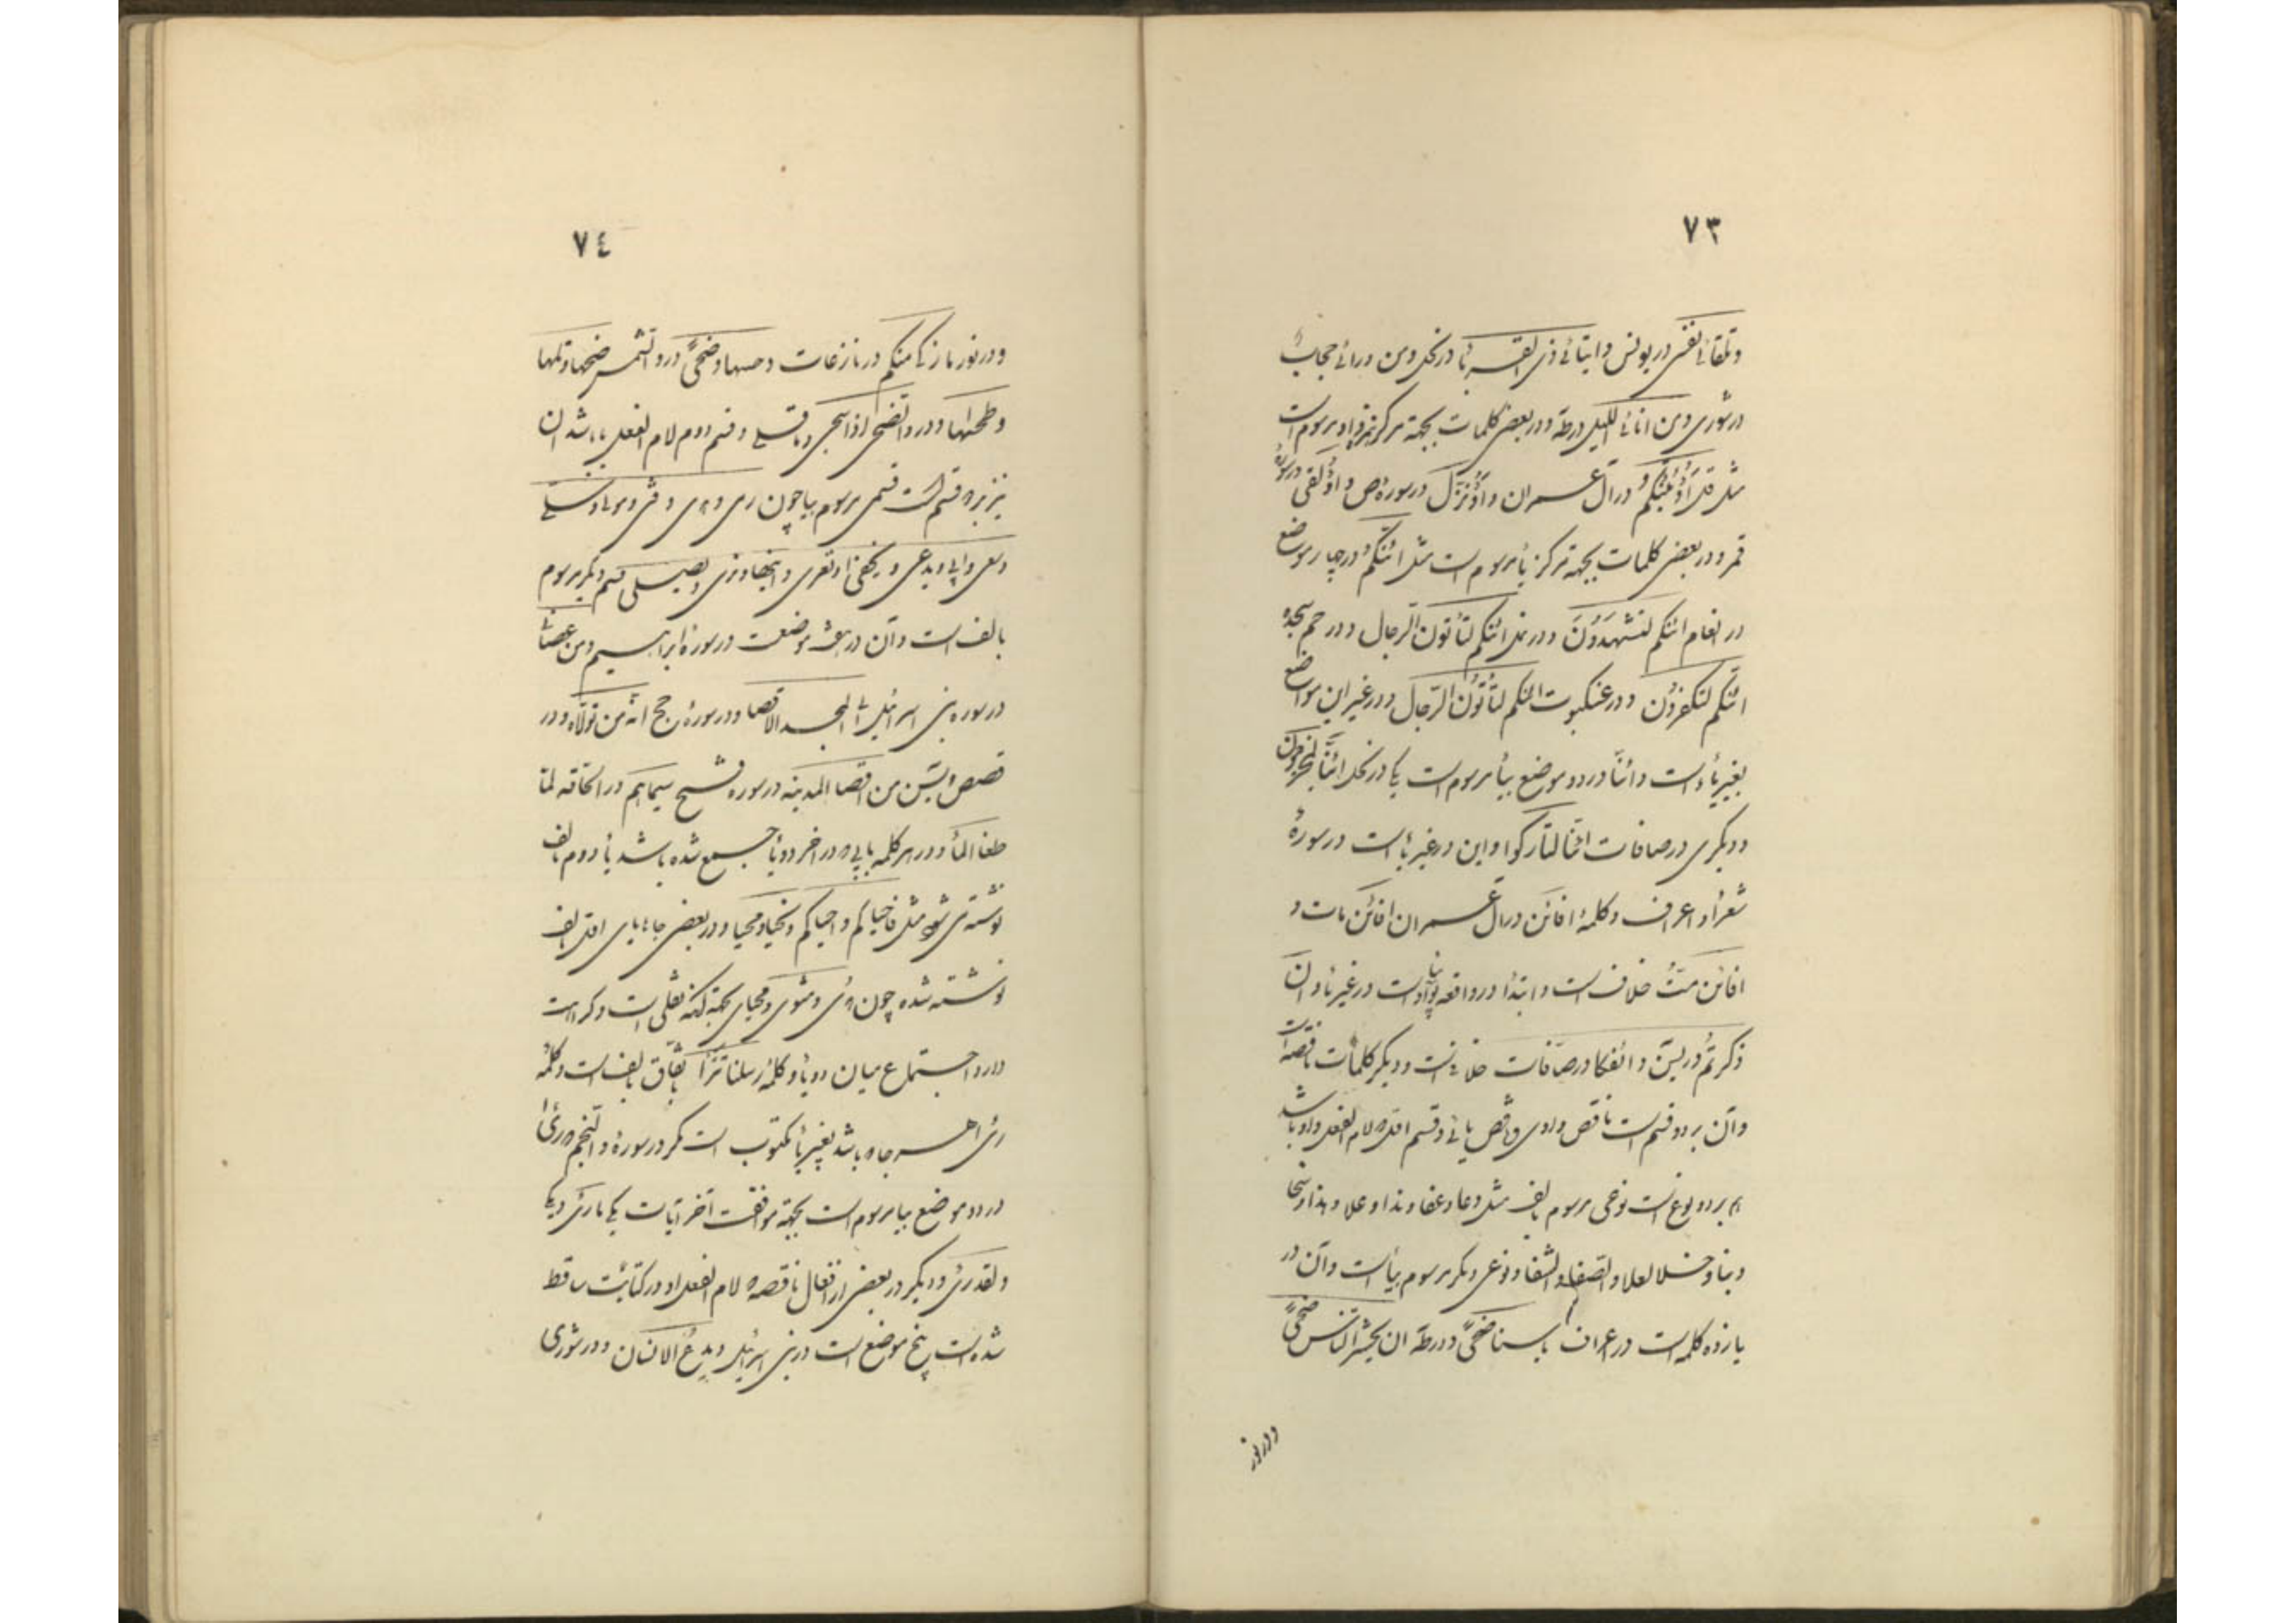 ٧٣
وتلقائ نفسی در یونس و ایتائ ذی القربی در نحل و من ورائ حجاب
در شوری و من انائ اللیل در طه و در بعضی کلمات بجهة مرکز همزه واو مرسوم است
مثل قل اؤنبئکم در آل عمران و اؤنزل در سوره ص و اؤلقی در سورهٔ
قمر و در بعضی کلمات بجهة مرکز یا مرسوم است مثل ائنکم در چهار موضع
در انعام ائنکم لتشهدون و در نمل ائنکم لتأتون الرجال و در حم سجده
ائنکم لتکفرون و در عنکبوت ائنکم لتأتون الرجال و در غیر این مواضع
بغیر یا است و ائنا در دو موضع بیا مرسوم است یکی در نمل ائنا لمخرجون
و دیگری در صافات ائنا لتارکوا و این در غیر یا است در سورهٔ
شعرا و اعراف و کلمهٔ افائن در آل عمران افائن مات و
افائن مت خلاف است و ابتدا در واقعه است در غیر
ذکرتم در یس و ائفکا در صافات خلاف است و دیگر کلمات ناقصه است
و آن بر دو قسم است ناقص واوی و ناقص یائی و قسم اول که لام الفعل واو باشد
هم بر دو نوع است نوعی مرسوم بالف مثل دعا و عفا و ندا و علا و هذا و نجا
و بنا و خلا لعلا و الصفا و الشفا و نوعی دیگر مرسوم بیا است و آن در
یازده کلمه است در اعراف باسنا ضحیً و در طه ان یحشر الناس ضحیً
و در نور
٧٤
و در نور ما زکی منکم در نازعات دحیها و ضحیً در و الشمس ضحیها و تلیها
و طحیها و در و الضحی اذا سجی و ما قلی و قسم دوم لام الفعل یا باشد ان
نیز بر دو قسم است قسمی مرسوم بیا چون رمی و
و سعی و ابی و یدعی و یخفی و تعری و ینهی و نری و یصلی قسم دیگر مرسوم
بالف است و آن در هشت موضعست در سورهٔ ابراهیم و من عصانی
در سوره بنی اسرائیل الی المسجد الاقصا و در سورهٔ حج انه من تولاه و در
قصص و یس من اقصا المدینه در سوره فتح سیماهم در الحاقه لما
طغا الما و در هر کلمه یایی که در اخر دو یا جمع شده باشد یا دوم بالف
نوشته می شود مثل فاحیاکم و احیاکم و نحیا و محیا و در بعضی جاها یای اول بالف
نوشته شده چون و مثوی و محیای بجهة آنکه ثقلی است و کراهت
دارد اجتماع میان دو یا و کلمهٔ رسلنا تترا باتفاق بالف است و کلمهٔ
رئ هر جا که باشد بغیر یا مکتوب است مگر در سورهٔ و النجم که رئ
در دو موضع بیا مرسوم است بجهة موافقت آخر آیات یکی ما رئ و یکی
و لقد رئ و دیگر در بعضی از افعال ناقصه که لام الفعل او در کتابت ساقط
شده است پنج موضع است در بنی اسرائیل و یدع الانسان و در شوری